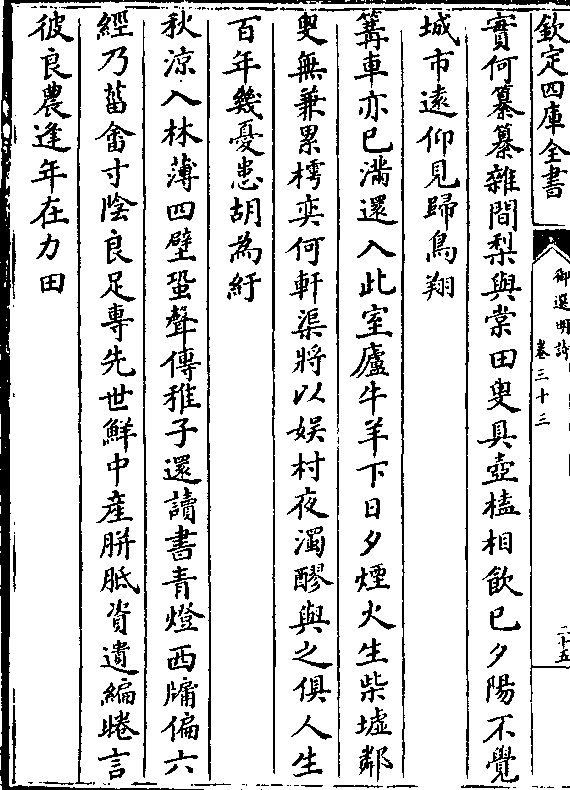 欽定四庫全書
御選明詩
卷三十三
二十五
實何纂纂雜間梨與棠田叟具壺榼相飲已夕陽不覺
城市遠仰見歸鳥翔
篝車亦已滿還入此室廬牛羊下日夕煙火生柴墟鄰
叟無兼累樗奕何軒渠將以娱村夜濁醪與之俱人生
百年幾憂患胡為紆
秋凉入林薄四壁蛩聲傳稚子還讀書青燈西牖偏六
經乃菑畬寸陰良足專先世鮮中産胼胝資遺編睠言
彼良農逢年在力田